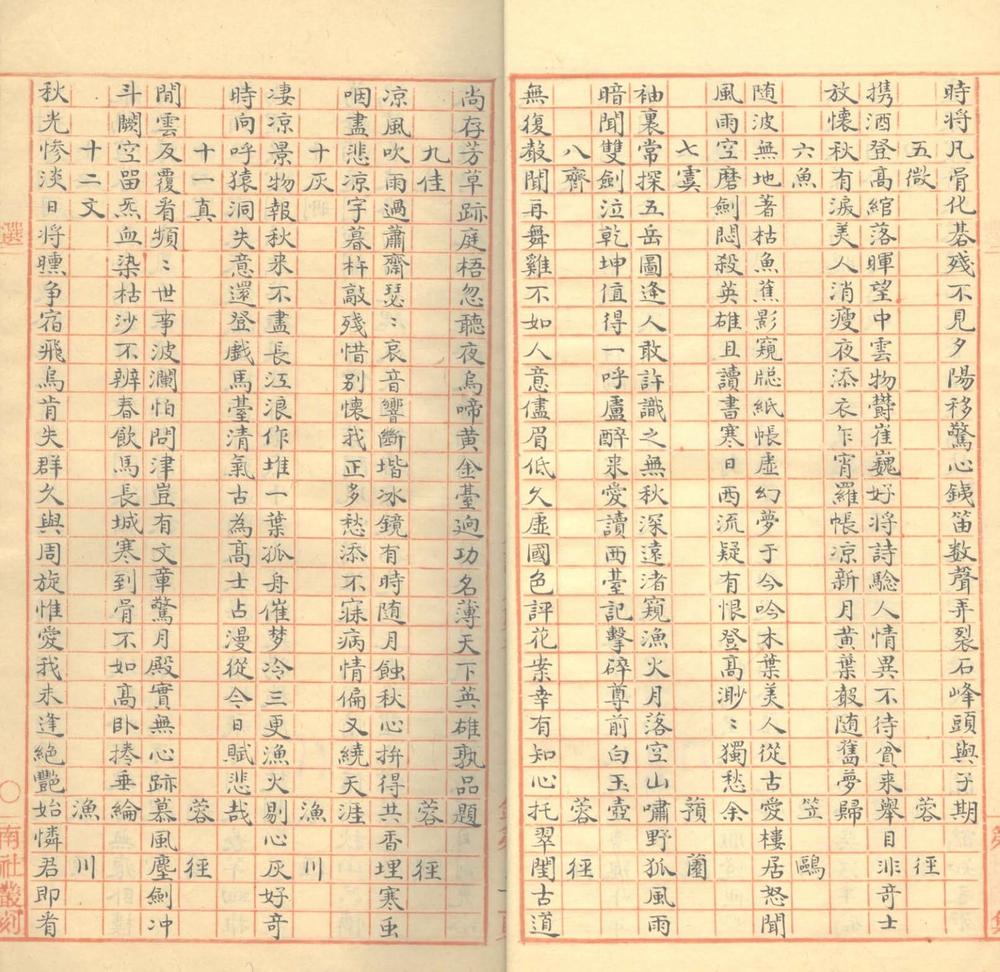 時將凡骨化碁殘不見夕陽移驚心鉄笛数聲弄裂石峰頭與子期
五微 蓉徑
携酒登高綰落暉望中雲物欝崔巍好將詩騐人情異不待貧来舉目非奇士
放懷秋有淚美人消瘦夜添衣乍宵羅帳凉新月黃葉聲随舊夢歸
六魚 笠鷗
随波無地著枯魚蕉影窺牕紙帳虛幻夢于今吟木葉美人從古愛樓居怒聞
風雨空磨劍悶殺英雄且讀書寒日西流疑有恨登高渺〻獨愁余
七虞 蘋蘭
袖裏常探五岳圖逢人敢許識之無秋深遠渚窺漁火月落空山嘯野狐風雨
暗聞雙劍泣乾坤值得一呼盧醉来愛讀西臺記擊碎尊前白玉壺
八齊 蓉徑
無復聲聞再舞雞不如人意儘眉低久虛國色評花案幸有知心托翠閨古道
尚存芳草跡庭梧忽聽夜烏啼黃金臺逈功名薄天下英雄孰品題
九佳 蓉徑
凉風吹雨過蕭齋瑟〻哀音響斷堦冰鏡有時随月蝕秋心拚得共香埋寒虫
咽盡悲凉字暮杵敲殘惜别懷我正多愁添不寐病情偏又繞天涯
十灰 漁川
凄凉景物報秋来不盡長江浪作堆一葉孤舟催梦冷三更漁火剔心灰好奇
時向呼猿洞失意還登戲馬臺清氣古為高士占漫從今日賦悲哉
十一真 蓉徑
閒雲反覆看頻〻世事波瀾怕問津豈有文章驚月殿實無心跡慕風塵劍冲
斗闕空留炁血染枯沙不辨春飲馬長城寒到骨不如高卧捲垂綸
十二文 漁川
秋光慘淡日將曛争宿飛烏肯失群久與周旋惟愛我未逢絶艷始憐君即看
選
南社叢刻